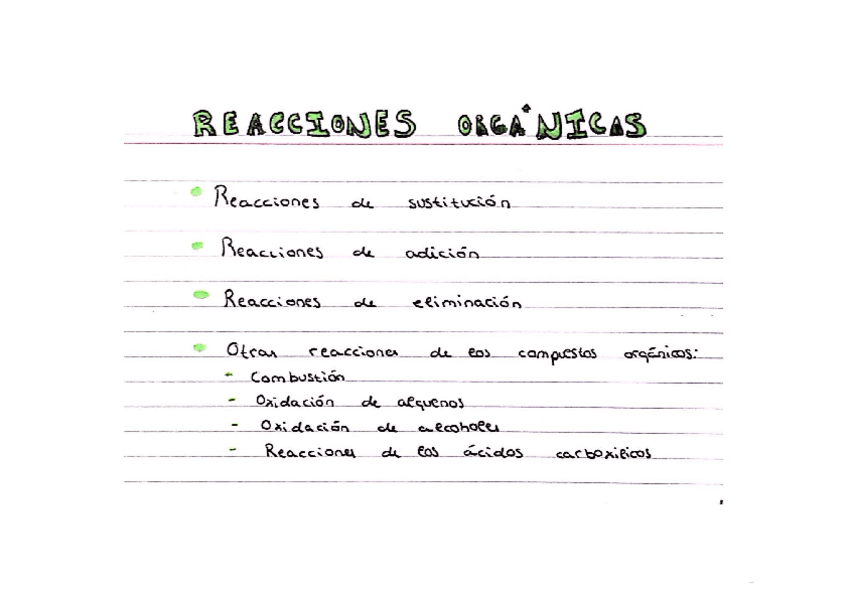 REACCIONES ORGÁNICAS
Reacciones de sustitución
Reacciones de adición
Reacciones de eliminación
Otras reacciones de los compuestos orgánicos:
- Combustión
- Oxidación de alquenos
- Oxidación de alcoholes
- Reacciones de los ácidos carboxílicos